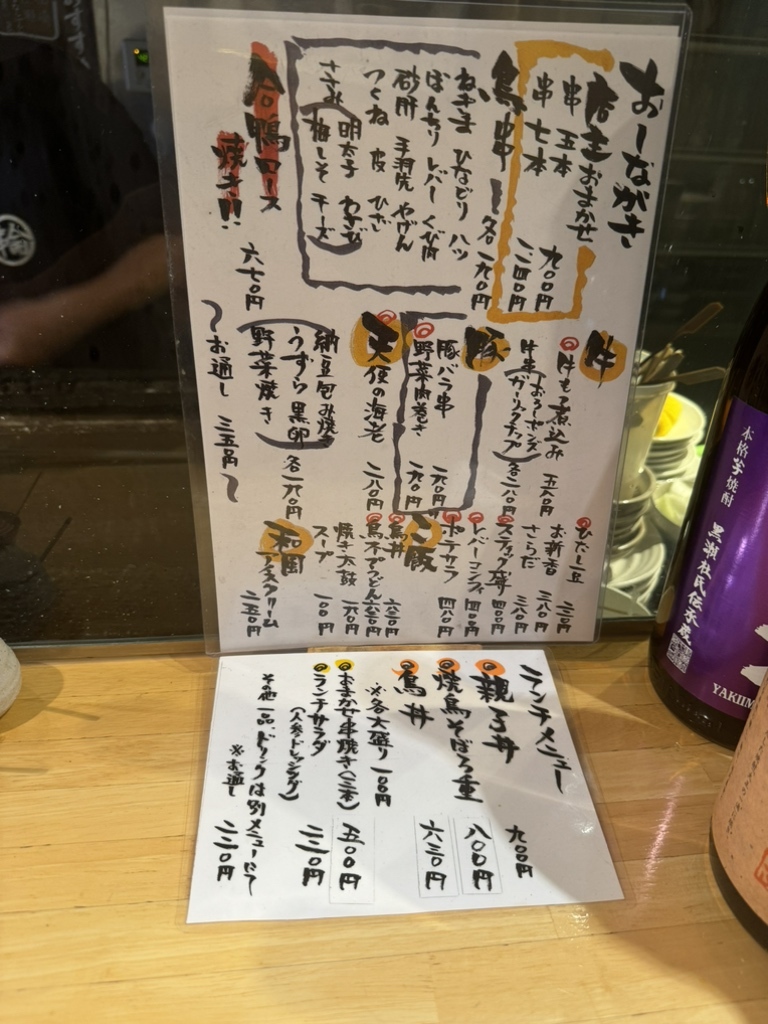 おーながき
店主おまかせ
串 五本 九〇〇円
串 七本 一二四〇円
鳥串 各一九〇円
ねぎま ひなどり ハツ
ぼんちり レバー くび肉
砂肝 手羽先 やげん
つくね 皮 ひざ
ささみ 明太子 わさび
梅しそ チーズ
合鴨ロース
焼き!! 六七〇円
牛
牛もつ煮込み 五六〇円
牛串 おろしポンズ
ガーリックチップ 各二八〇円
豚
豚バラ串 一九〇円
野菜肉巻き 一九〇円
天使の海老 二八〇円
納豆包み焼き
うずら黒卵 各一九〇円
野菜焼き
お通し 三三五円
ひたし豆 二三〇円
お新香 三八〇円
さらだ 三八〇円
スティック盛 四〇〇円
レバーコンフィ 四〇〇円
ポテサラ 四八〇円
ご飯
鳥丼 六三〇円
鳥木でうどん 六三〇円
焼き太鼓 一六〇円
スープ 一〇〇円
和風
アイスクリーム 二五〇円
ランチメニュー
親子丼 九〇〇円
焼鳥そぼろ重 八〇〇円
鳥丼 六三〇円
※各大盛り 一〇〇円
おまかせ串焼き(三本) 五〇〇円
ランチサラダ 二二〇円
(人参ドレッシング)
その他一品、ドリンクは別メニューにて
※お通し 二二〇円
本格芋焼酎
黒瀬杜氏伝承蔵